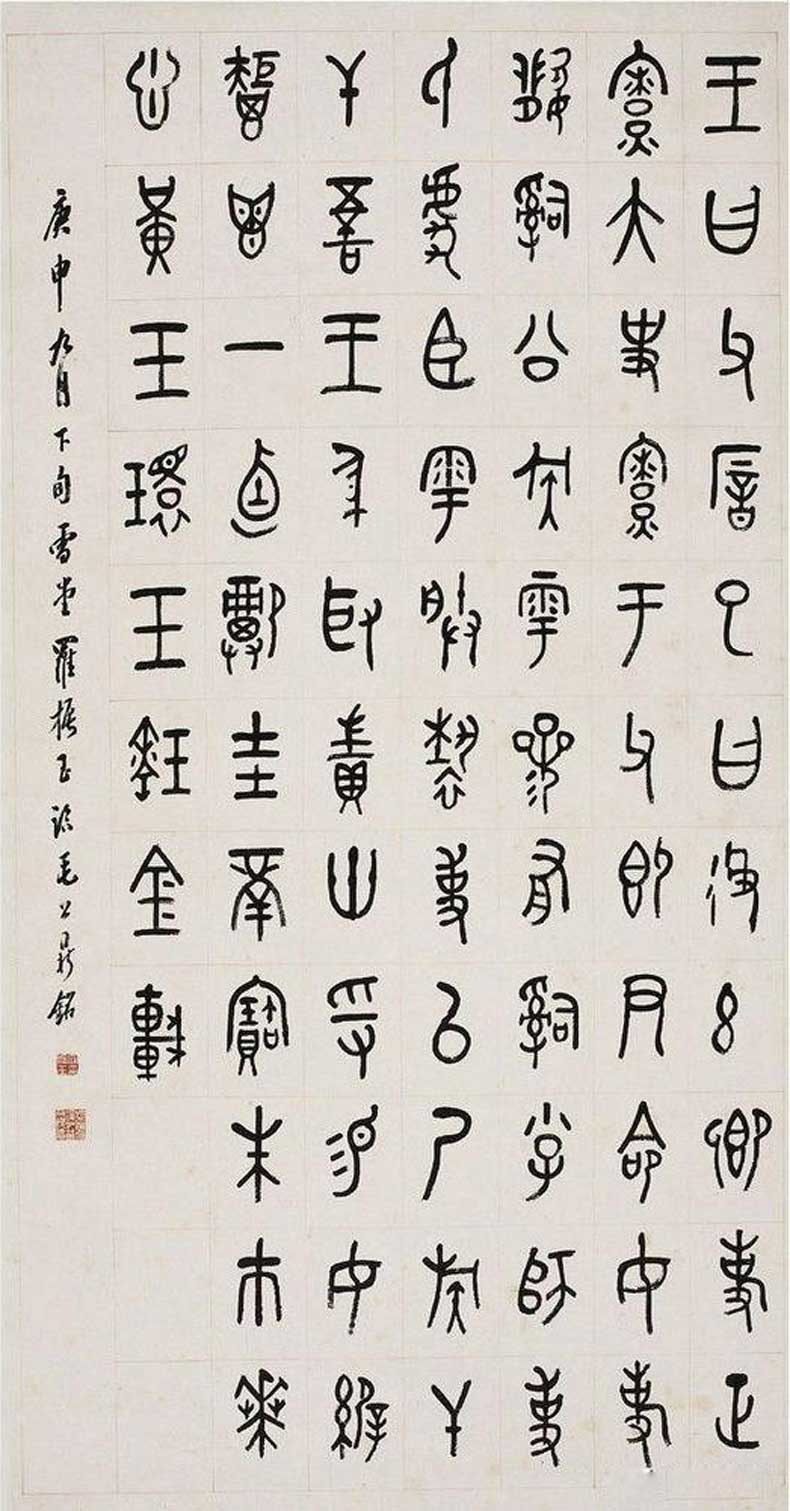 王曰父厝已曰彶茲卿事
寮大史寮于父即尹命女
𤔲公族雩參有𤔲小子師
虎臣雩朕褻事以乃族干
吾王身取卅寽易女
鬯一卣祼圭瓚寶朱市
悤黃玉環玉瑹金車
庚申九月下旬雪堂羅振玉臨毛公鼎銘